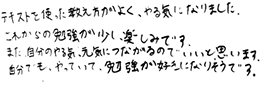 テキストを使った教え方がよく、やる気になりました。
これからの勉強が少し楽しみです。
また自分のやる気、元気につながるのでいいと思います。
自分でも、やっていて、勉強が好きになりそうです。